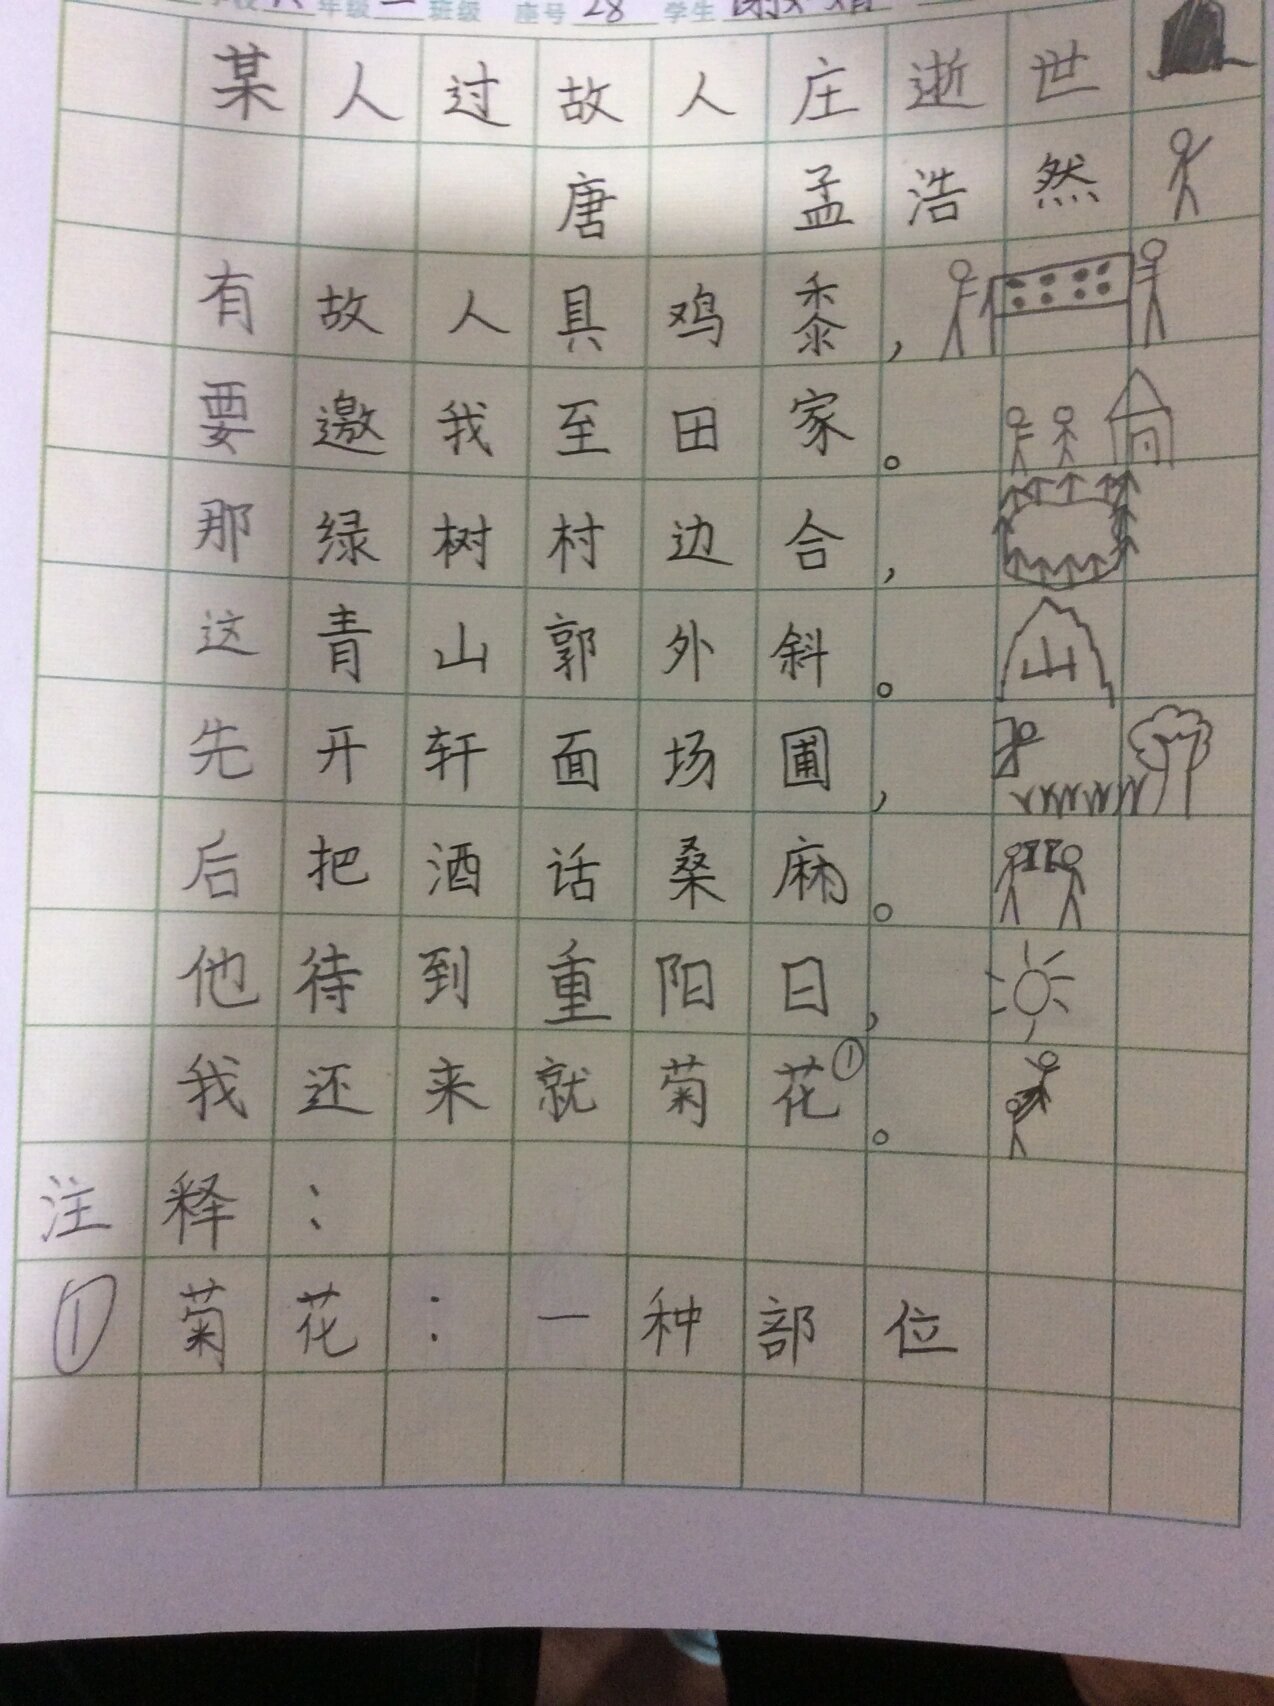 年级 班级 座号 28 学生
某人过故人庄逝世
唐 孟浩然
有故人具鸡黍，
要邀我至田家。
那绿树村边合，
这青山郭外斜。
先开轩面场圃，
后把酒话桑麻。
他待到重阳日，
我还来就菊花①。
注释：
①菊花：一种部位
山